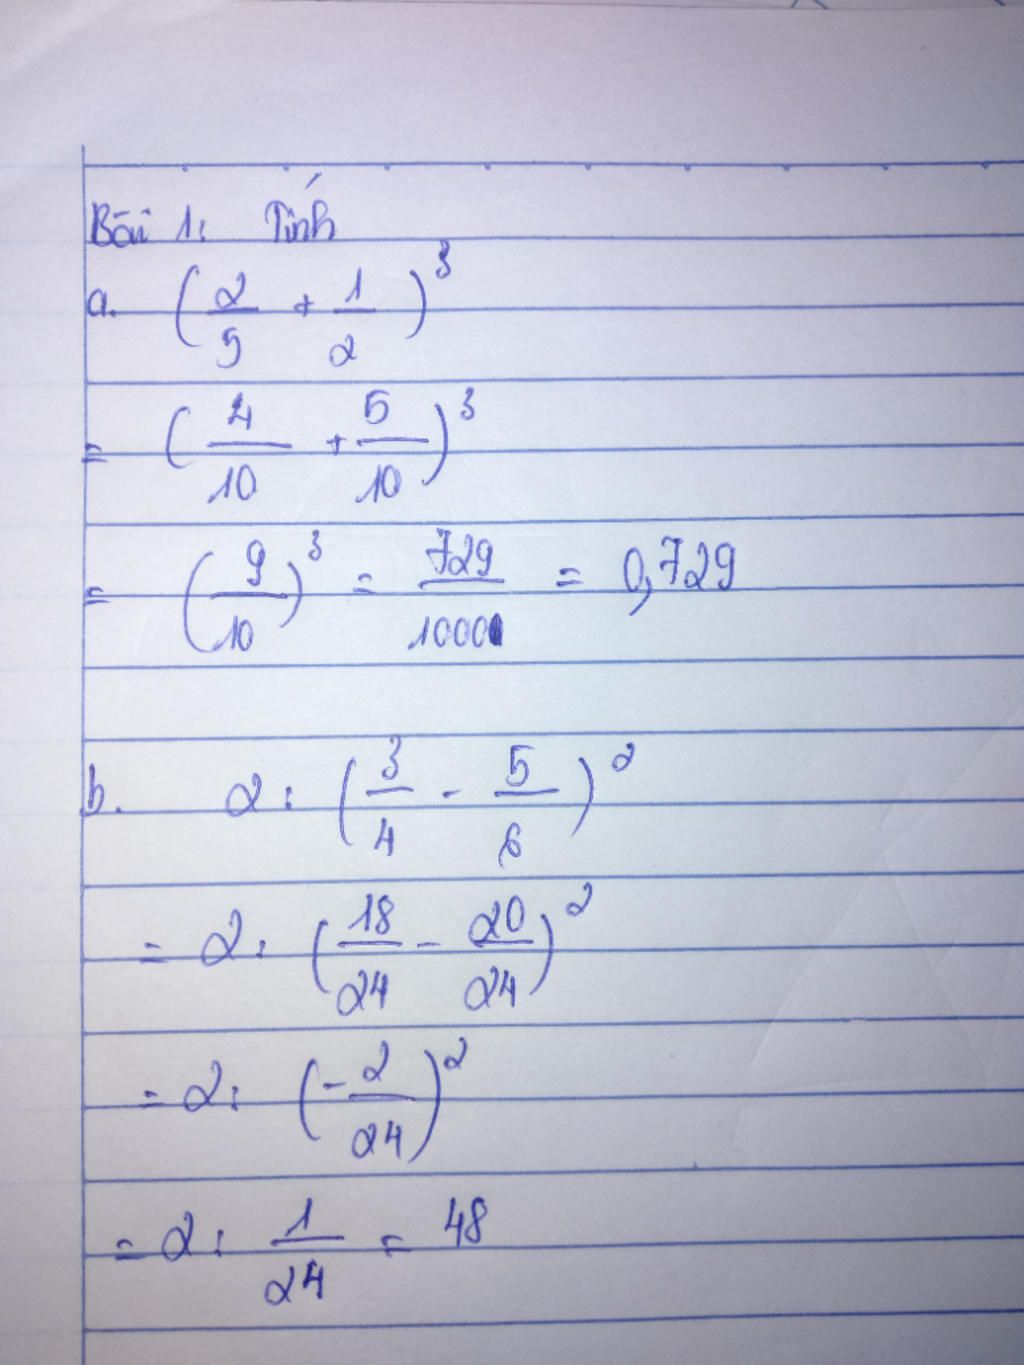 Bài 1: Tính
a. (2/5 + 1/2)³
= (4/10 + 5/10)³
= (9/10)³ = 729/1000 = 0,729
b. 2 : (3/4 - 5/6)²
= 2 : (18/24 - 20/24)²
= 2 : (-2/24)²
= 2 : 1/24 = 48